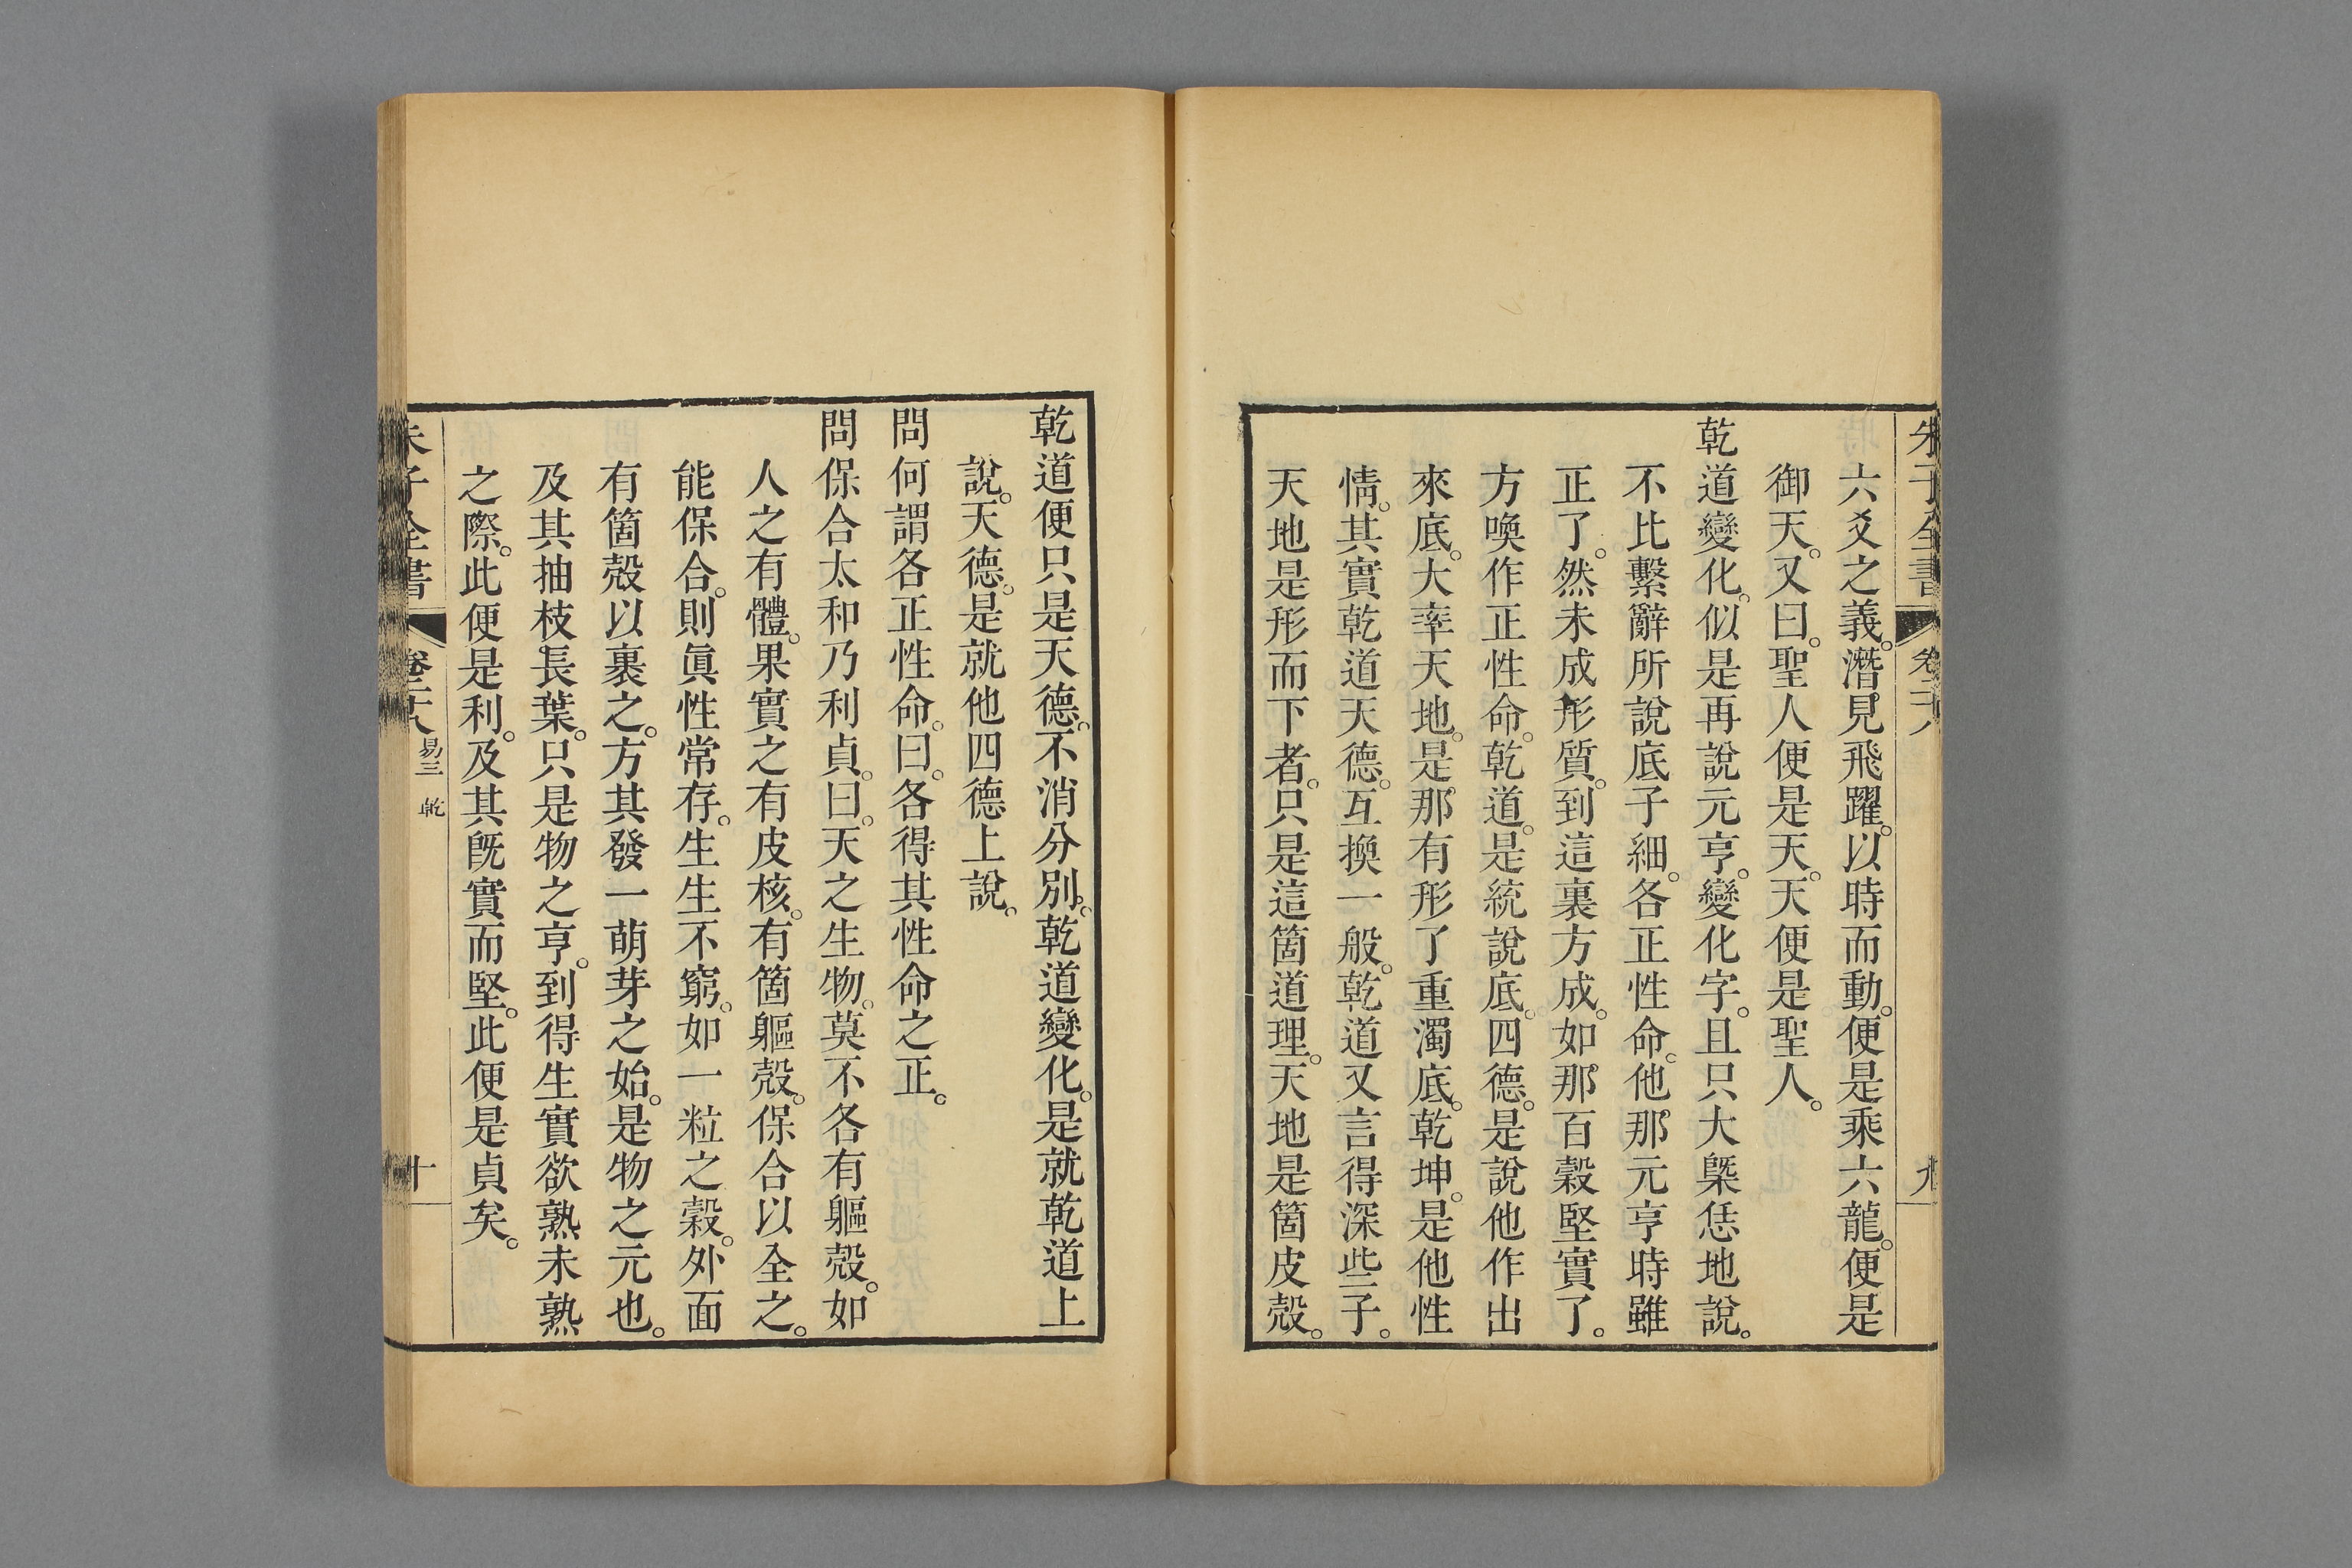 朱子全書 卷二十八 九
六爻之義。潛見飛躍。以時而動。便是乘六龍。便是
御天。又曰。聖人便是天。天便是聖人。
乾道變化。似是再說元亨。變化字。且只大槩恁地說。
不比繫辭所說底子細。各正性命。他那元亨時雖
正了。然未成形質。到這裏方成。如那百穀堅實了。
方喚作正性命。乾道。是統說底。四德。是說他作出
來底。大率天地。是那有形了重濁底。乾坤。是他性
情。其實乾道天德。互換一般。乾道又言得深些子。
天地是形而下者。只是這箇道理。天地是箇皮殼。
乾道便只是天德。不消分別。乾道變化。是就乾道上
說。天德。是就他四德上說。
問何謂各正性命。曰。各得其性命之正。
問保合太和乃利貞。曰。天之生物。莫不各有軀殼。如
人之有體。果實之有皮核。有箇軀殼。保合以全之。
能保合。則眞性常存。生生不窮。如一粒之穀。外面
有箇殼以裹之。方其發一萌芽之始。是物之元也。
及其抽枝長葉。只是物之亨。到得生實欲熟未熟
之際。此便是利。及其旣實而堅。此便是貞矣。
朱子全書 卷二十八 易三 乾 十